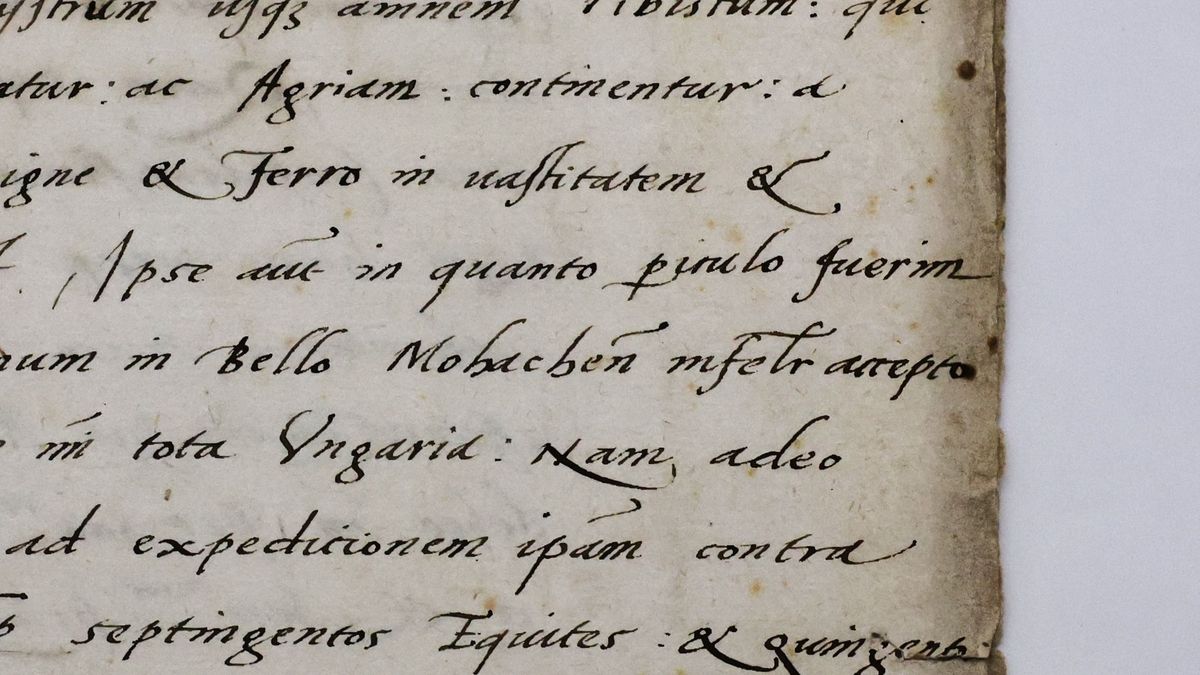 usqꝫ amnem Tibistum: qui
atur: ac Agriam: continentur: a
igne & Ferro in uastitatem &
Ipse aūt in quanto piculo fuerim
num in Bello Mohacheñ infelr accepto
tota Vngaria: Nam adeo
ad expedicionem ipām contra
septingentos Equites: & quingent